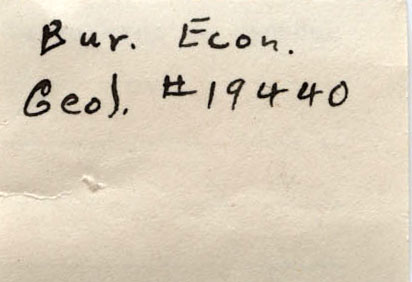 Bur. Econ.
Geol. #19440